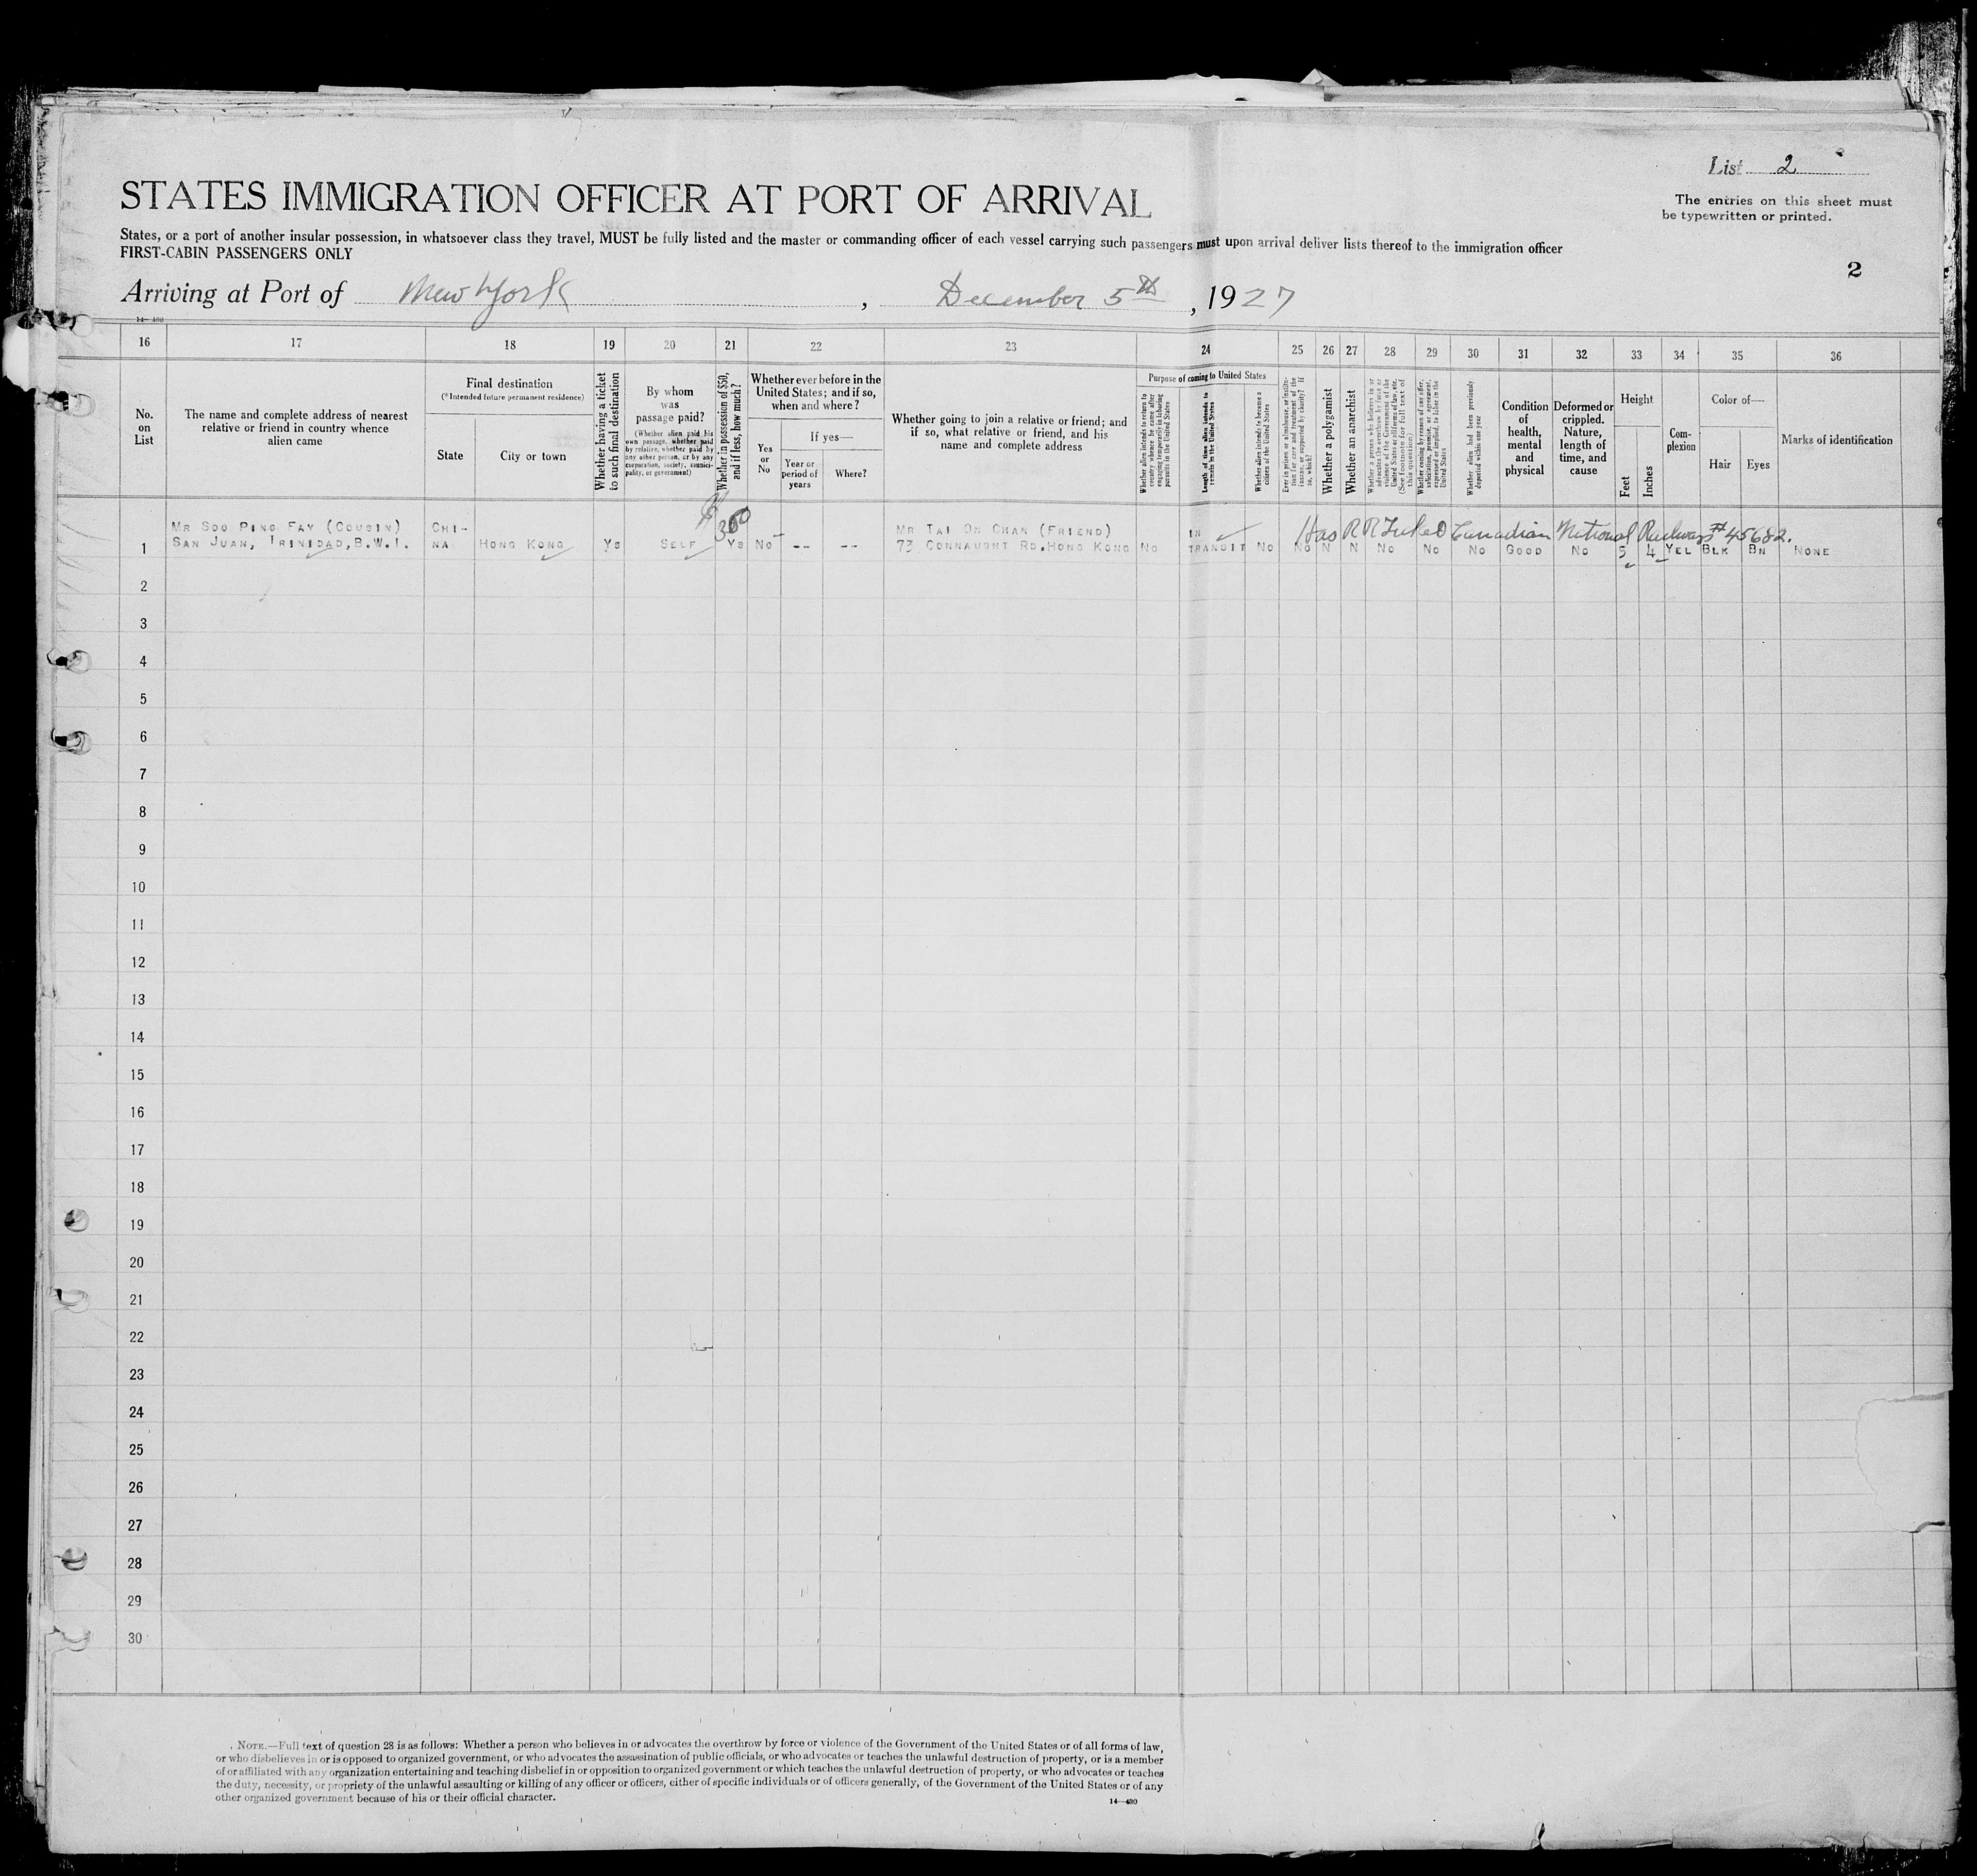 List 2
The entries on this sheet must
be typewritten or printed.
STATES IMMIGRATION OFFICER AT PORT OF ARRIVAL
States, or a port of another insular possession, in whatsoever class they travel, MUST be fully listed and the master or commanding officer of each vessel carrying such passengers must upon arrival deliver lists thereof to the immigration officer
FIRST-CABIN PASSENGERS ONLY
2
Arriving at Port of New York, December 5th, 1927
14-430
16 17 18 19 20 21 22 23 24 25 26 27 28 29 30 31 32 33 34 35 36
No.
on
List
The name and complete address of nearest
relative or friend in country whence
alien came
Final destination
(*Intended future permanent residence)
State
City or town
Whether having a ticket
to such final destination
By whom
was
passage paid?
(Whether alien paid his
own passage, whether paid
by relative, whether paid by
any other person, or by any
corporation, society, munici-
pality, or government)
Whether in possession of $50,
and if less, how much?
Whether ever before in the
United States; and if so,
when and where?
Yes
or
No
If yes—
Year or
period of
years
Where?
Whether going to join a relative or friend; and
if so, what relative or friend, and his
name and complete address
Purpose of coming to United States
Whether alien intends to return to
country whence he came after
engaging temporarily in laboring
pursuits in the United States
Length of time alien intends to
remain in the United States
Whether alien intends to become a
citizen of the United States
Ever in prison or almshouse, or institu-
tion for care and treatment of the
insane, or supported by charity? If
so, which?
Whether a polygamist
Whether an anarchist
Whether a person who believes in or
advocates the overthrow by force or
violence of the Government of the
United States or all forms of law, etc.
(See footnote for full text of
this question)
Whether coming by reason of any offer,
solicitation, promise, or agreement,
expressed or implied, to labor in the
United States
Whether alien had been previously
deported within one year
Condition
of
health,
mental
and
physical
Deformed or
crippled.
Nature,
length of
time, and
cause
Height
Feet
Inches
Com-
plexion
Color of—
Hair
Eyes
Marks of identification
$360
Has RR Ticket Canadian National Railways #45682.
MR SOO PING FAY (COUSIN) CHI- MR TAI ON CHAN (FRIEND) IN
1 SAN JUAN, TRINIDAD, B.W.I. NA HONG KONG YS SELF YS NO -- -- 73 CONNAUGHT RD.HONG KONG NO TRANSIT NO NO N N NO NO NO GOOD NO 5 4 YEL BLK BN NONE
2
3
4
5
6
7
8
9
10
11
12
13
14
15
16
17
18
19
20
21
22
23
24
25
26
27
28
29
30
NOTE.—Full text of question 28 is as follows: Whether a person who believes in or advocates the overthrow by force or violence of the Government of the United States or of all forms of law,
or who disbelieves in or is opposed to organized government, or who advocates the assassination of public officials, or who advocates or teaches the unlawful destruction of property, or is a member
of or affiliated with any organization entertaining and teaching disbelief in or opposition to organized government or which teaches the unlawful destruction of property, or who advocates or teaches
the duty, necessity, or propriety of the unlawful assaulting or killing of any officer or officers, either of specific individuals or of officers generally, of the Government of the United States or of any
other organized government because of his or their official character.
14—430